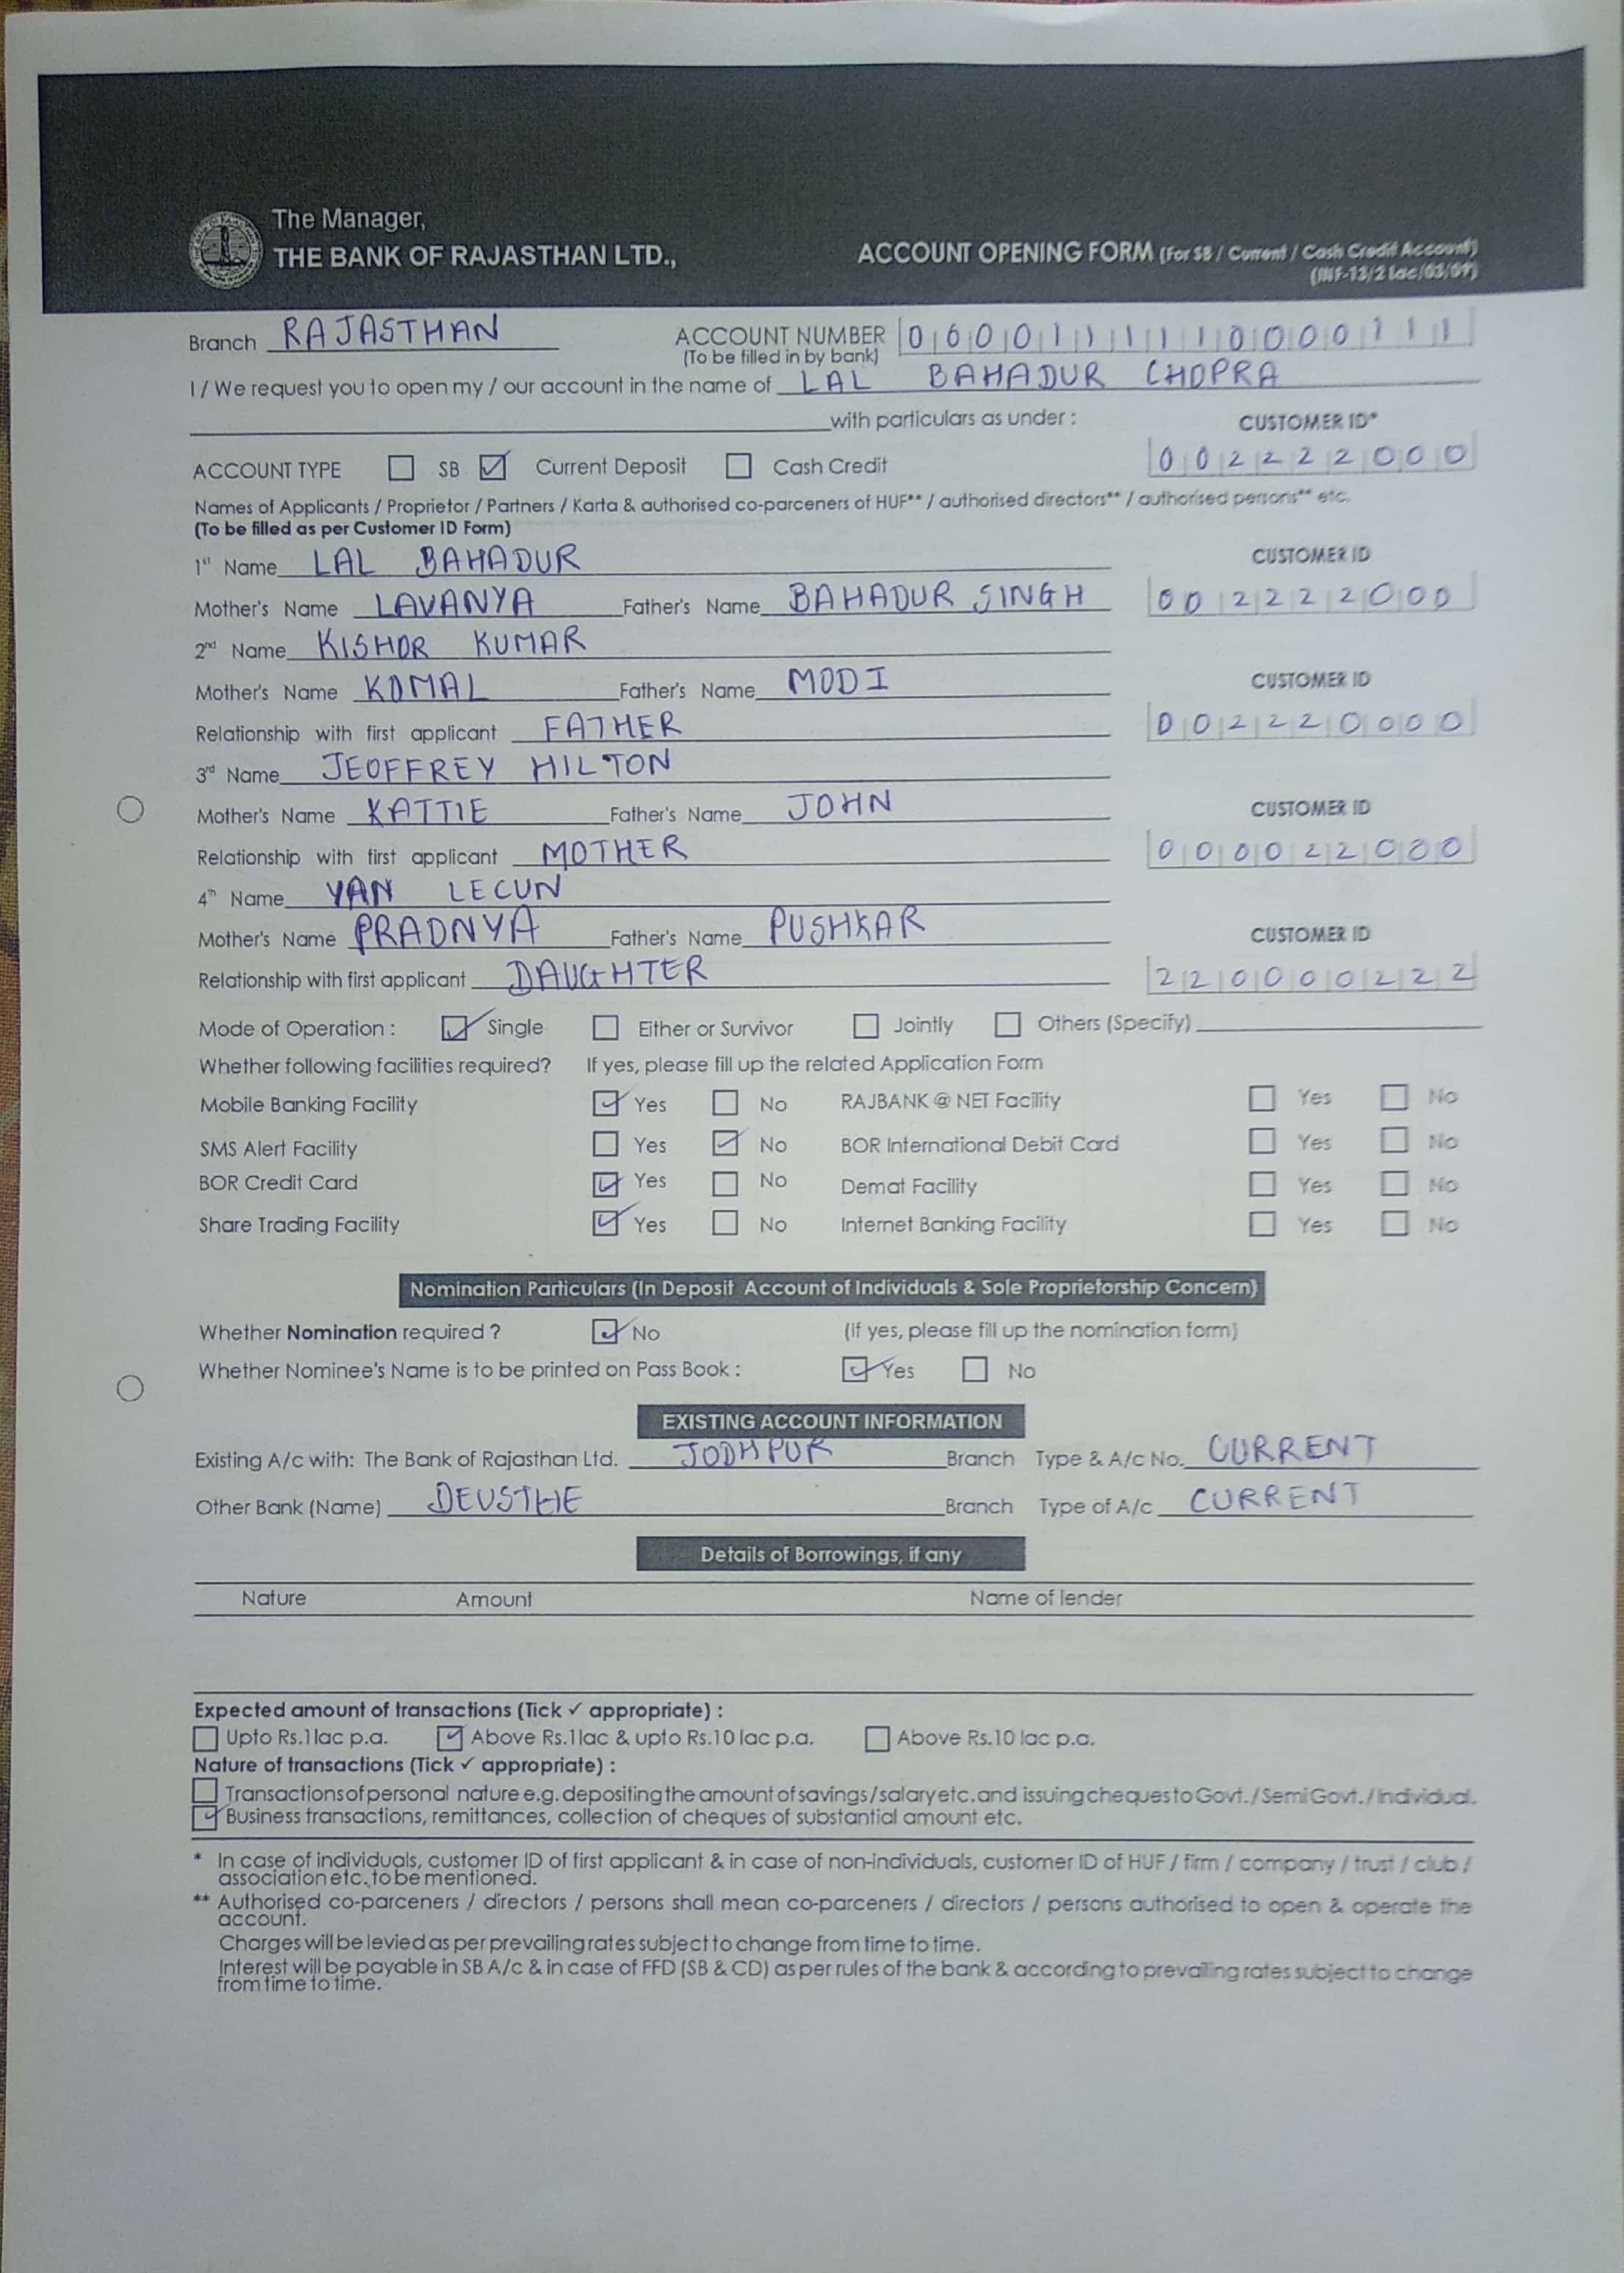 The Manager,
THE BANK OF RAJASTHAN LTD.,
ACCOUNT OPENING FORM (For SB / Current / Cash Credit Account)
(INF-13/2 Lac/03/07)
Branch RAJASTHAN
ACCOUNT NUMBER
(To be filled in by bank)
I / We request you to open my / our account in the name of LAL BAHADUR CHOPRA
with particulars as under :
CUSTOMER ID*
ACCOUNT TYPE SB Current Deposit Cash Credit
002222000
Names of Applicants / Proprietor / Partners / Karta & authorised co-parceners of HUF** / authorised directors** / authorised persons** etc.
(To be filled as per Customer ID Form)
1st Name LAL BAHADUR
CUSTOMER ID
Mother's Name LAVANYA Father's Name BAHADUR SINGH
002222000
2nd Name KISHOR KUMAR
Mother's Name KOMAL Father's Name MODI
CUSTOMER ID
Relationship with first applicant FATHER
002220000
3rd Name JEOFFREY HILTON
Mother's Name KATTIE Father's Name JOHN
CUSTOMER ID
Relationship with first applicant MOTHER
000022000
4th Name YAN LECUN
Mother's Name PRADNYA Father's Name PUSHKAR
CUSTOMER ID
Relationship with first applicant DAUGHTER
220000222
Mode of Operation : Single Either or Survivor Jointly Others (Specify)
Whether following facilities required? If yes, please fill up the related Application Form
Mobile Banking Facility Yes No RAJBANK @ NET Facility Yes No
SMS Alert Facility Yes No BOR International Debit Card Yes No
BOR Credit Card Yes No Demat Facility Yes No
Share Trading Facility Yes No Internet Banking Facility Yes No
Nomination Particulars (In Deposit Account of Individuals & Sole Proprietorship Concern)
Whether Nomination required ? No (If yes, please fill up the nomination form)
Whether Nominee's Name is to be printed on Pass Book : Yes No
EXISTING ACCOUNT INFORMATION
Existing A/c with: The Bank of Rajasthan Ltd. JODHPUR Branch Type & A/c No. CURRENT
Other Bank (Name) DEUSTHE Branch Type of A/c CURRENT
Details of Borrowings, if any
Nature Amount Name of lender
Expected amount of transactions (Tick ✓ appropriate) :
Upto Rs.1lac p.a. Above Rs.1lac & upto Rs.10 lac p.a. Above Rs.10 lac p.a.
Nature of transactions (Tick ✓ appropriate) :
Transactions of personal nature e.g. depositing the amount of savings/salary etc. and issuing cheques to Govt./Semi Govt./Individual.
Business transactions, remittances, collection of cheques of substantial amount etc.
* In case of individuals, customer ID of first applicant & in case of non-individuals, customer ID of HUF / firm / company / trust / club /
association etc., to be mentioned.
** Authorised co-parceners / directors / persons shall mean co-parceners / directors / persons authorised to open & operate the
account.
Charges will be levied as per prevailing rates subject to change from time to time.
Interest will be payable in SB A/c & in case of FFD (SB & CD) as per rules of the bank & according to prevailing rates subject to change
from time to time.